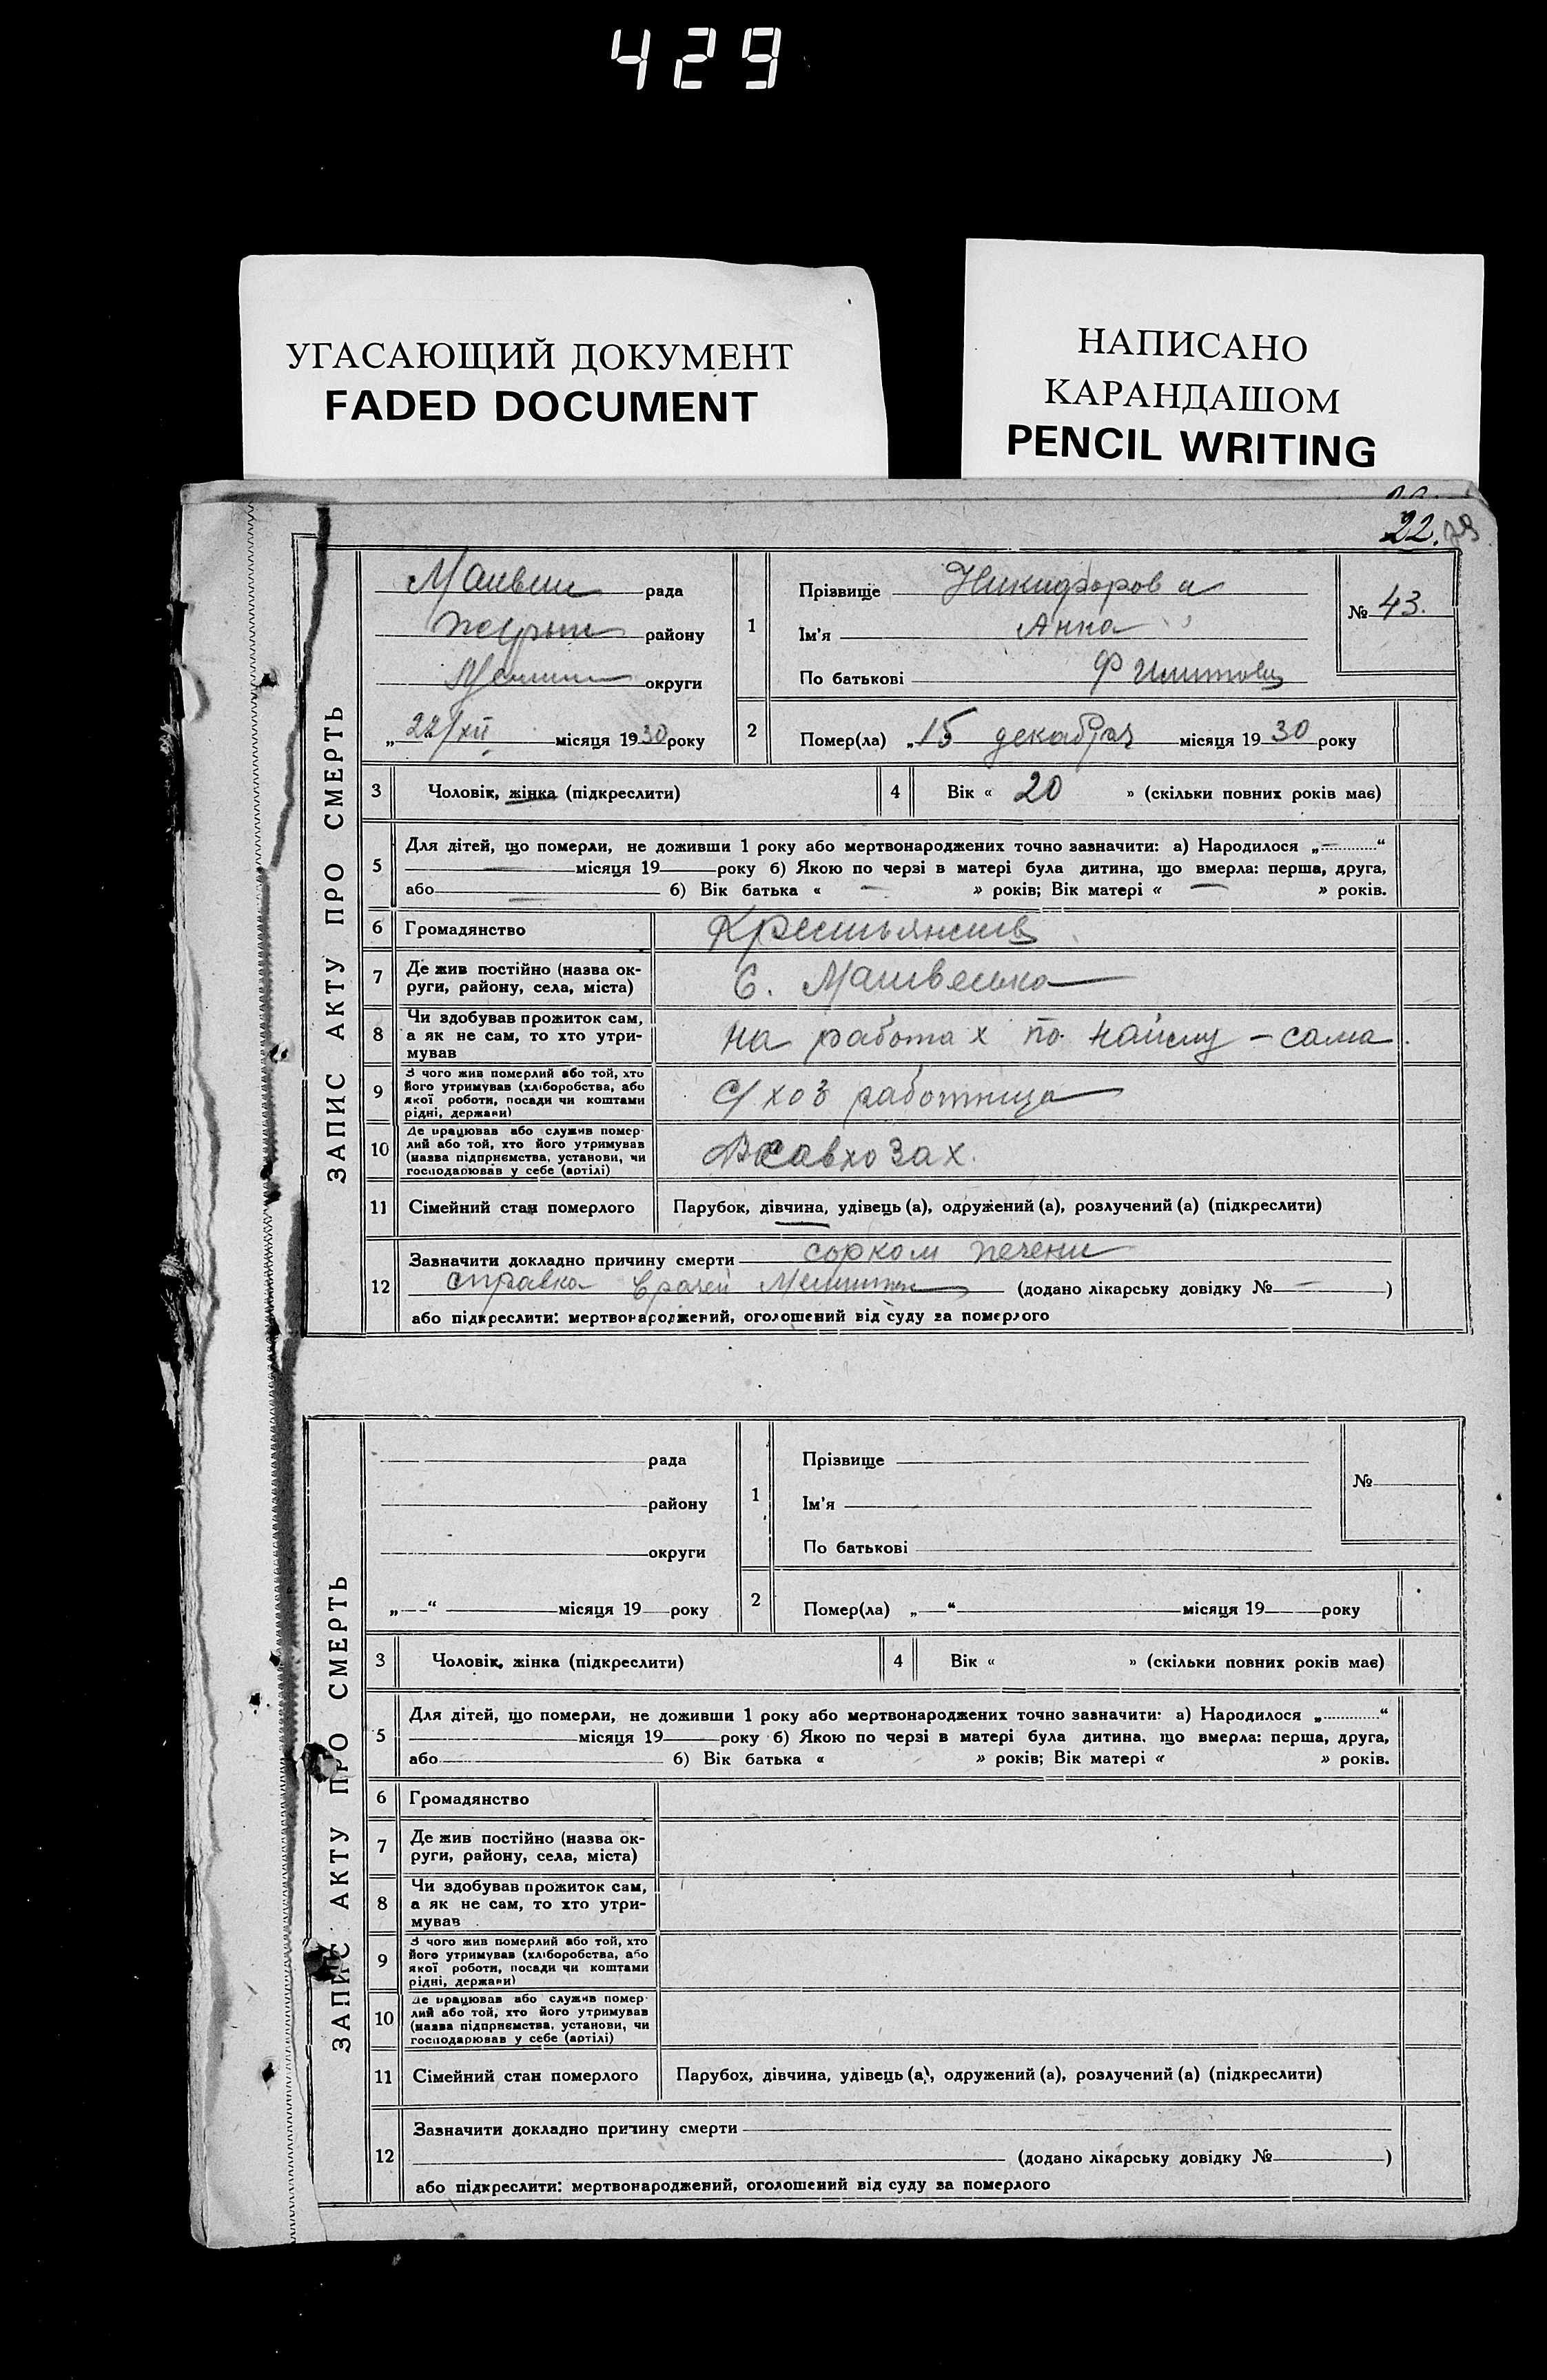 429
УГАСАЮЩИЙ ДОКУМЕНТ
FADED DOCUMENT
НАПИСАНО
КАРАНДАШОМ
PENCIL WRITING
22.
ЗАПИС АКТУ ПРО СМЕРТЬ
рада
району
округи
„22/XII місяця 1930 року
1
Прізвище Никифорова
Ім'я Анна
По батькові
№ 43.
2
Помер(ла) „15 декабря місяця 1930 року
3 Чоловік, жінка (підкреслити)
4 Вік « 20 » (скільки повних років має)
5
Для дітей, що померли, не доживши 1 року або мертвонароджених точно зазначити: а) Народилося „ — “
місяця 19 року б) Якою по черзі в матері була дитина, що вмерла: перша, друга,
або — б) Вік батька « — » років; Вік матері « — » років.
6 Громадянство
7 Де жив постійно (назва ок-
руги, району, села, міста)
С.
8 Чи здобував прожиток сам,
а як не сам, то хто утри-
мував
на работах по найму – сама.
9 З чого жив померлий або той, хто
його утримував (хліборобства, або
якої роботи, посади чи коштами
рідні, держави)
С/хоз работница
10 Де працював або служив помер-
лий або той, хто його утримував
(назва підприємства, установи, чи
господарював у себе (артілі)
В савхозах.
11 Сімейний стан померлого Парубок, дівчина, удівець (а), одружений (а), розлучений (а) (підкреслити)
12
Зазначити докладно причину смерти печени
справка (додано лікарську довідку № — )
або підкреслити: мертвонароджений, оголошений від суду за померлого
ЗАПИС АКТУ ПРО СМЕРТЬ
рада
району
округи
„ “ місяця 19 року
1
Прізвище
Ім'я
По батькові
№
2
Помер(ла) „ “ місяця 19 року
3 Чоловік, жінка (підкреслити)
4 Вік « » (скільки повних років має)
5
Для дітей, що померли, не доживши 1 року або мертвонароджених точно зазначити: а) Народилося „ “
місяця 19 року б) Якою по черзі в матері була дитина, що вмерла: перша, друга,
або б) Вік батька « » років; Вік матері « » років.
6 Громадянство
7 Де жив постійно (назва ок-
руги, району, села, міста)
8 Чи здобував прожиток сам,
а як не сам, то хто утри-
мував
9 З чого жив померлий або той, хто
його утримував (хліборобства, або
якої роботи, посади чи коштами
рідні, держави)
10 Де працював або служив помер-
лий або той, хто його утримував
(назва підприємства, установи, чи
господарював у себе (артілі)
11 Сімейний стан померлого Парубок, дівчина, удівець (а), одружений (а), розлучений (а) (підкреслити)
12
Зазначити докладно причину смерти
(додано лікарську довідку № )
або підкреслити: мертвонароджений, оголошений від суду за померлого